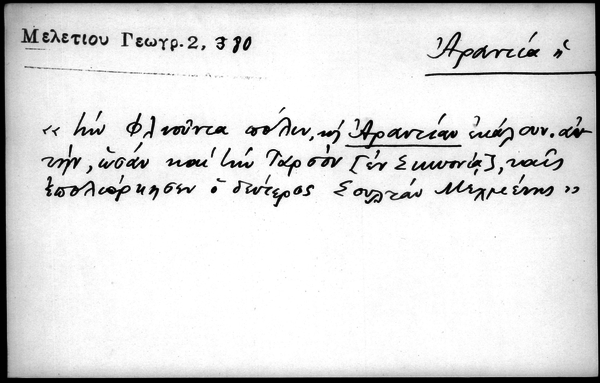 Μελετίου Γεωγρ. 2, 380
Ἀραντία ἡ
«τὴν Φλιοῦντα πόλιν, κὴ Ἀραντίαν ἐκάλουν αὐ
τήν, ὡσάν καὶ τὴν Ταρσὸν [ἐν Σικυωνίᾳ], ταῖς
ἐπολιόρκησεν ὁ δεύτερος Σουλτάν Μεχμέτης»